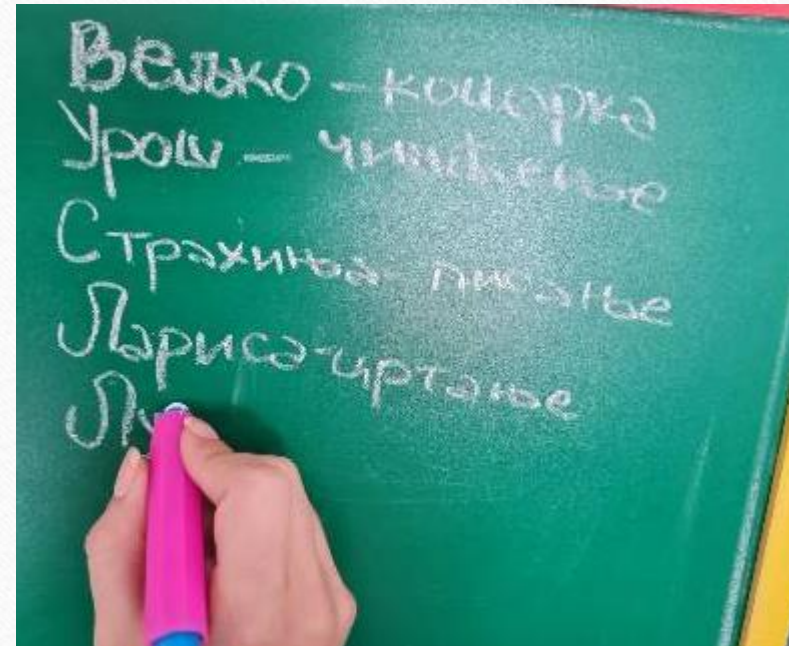 Вељко – кошарка
Урош –
Страхиња – писање
Лариса – цртање
Лу